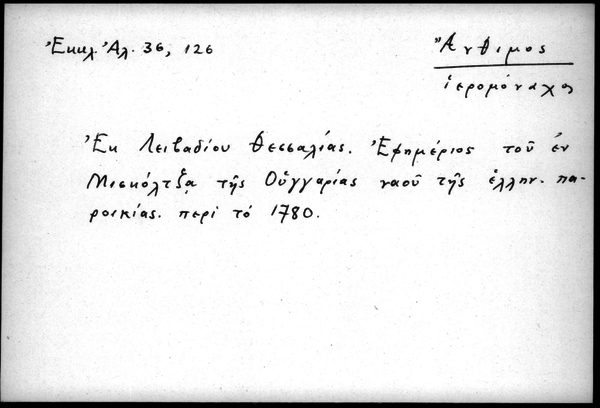 Ἐκκλ. Ἀλ. 36, 126
Ἄνθιμος
ἱερομόναχος
Ἐκ Λειβαδίου Θεσσαλίας. Ἐφημέριος τοῦ ἐν
Μισκόλτζᾳ τῆς Οὑγγαρίας ναοῦ τῆς ἑλλην. πα-
ροικίας. περὶ τὸ 1780.